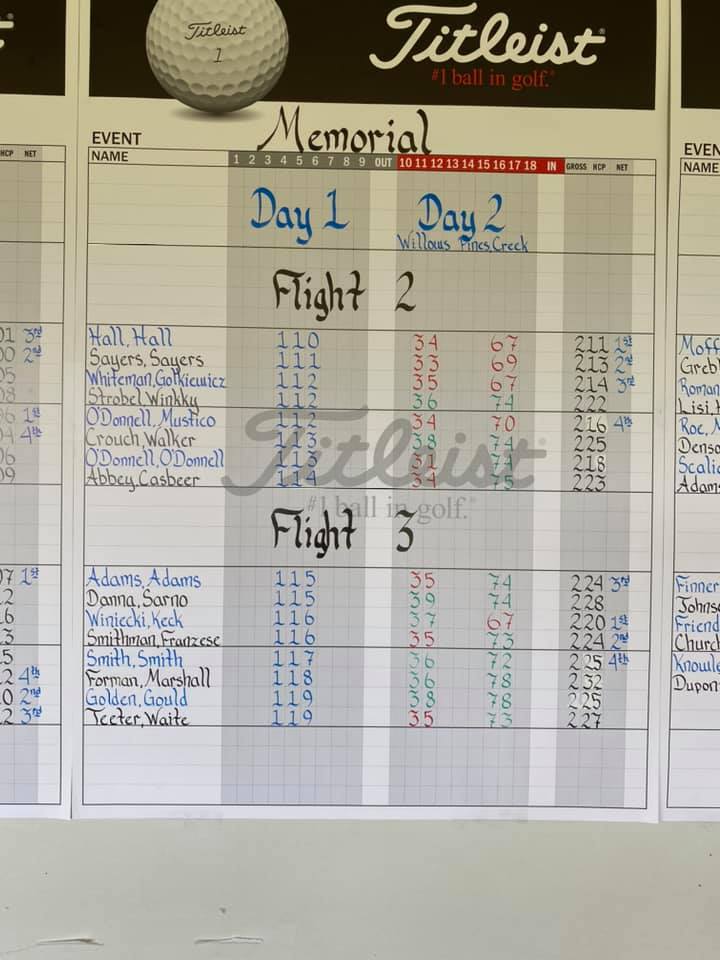 Titleist
1
Titleist
#1 ball in golf.
EVENT Memorial
NAME 1 2 3 4 5 6 7 8 9 OUT 10 11 12 13 14 15 16 17 18 IN GROSS HCP NET
Day 1 Day 2
Willows Pines, Creek
Flight 2
Hall, Hall 110 34 67 211 1st
Sayers, Sayers 111 33 69 213 2nd
Whiteman, Gotkiewicz 112 35 67 214 3rd
Strobel, Winkky 112 36 74 222
O'Donnell, Mustico 112 34 70 216 4th
Crouch, Walker 113 38 74 225
O'Donnell, O'Donnell 113 31 74 218
Abbey, Casbeer 114 34 75 223
Titleist
#1 ball in golf.
Flight 3
Adams, Adams 115 35 74 224 3rd
Danna, Sarno 115 39 74 228
Winiecki, Keck 116 37 67 220 1st
Smithman, Franzese 116 35 73 224 2nd
Smith, Smith 117 36 72 225 4th
Forman, Marshall 118 36 78 232
Golden, Gould 119 38 78 225
Teeter, Waite 119 35 73 227
HCP NET
01 3rd
00 2nd
05
08
06 1st
04 4th
06
09
07 1st
12
16
13
15
12 4th
10 2nd
12 3rd
EVEN
NAME
Moff
Greb
Roman
Lisi,
Roe, M
Denso
Scali
Adam
Finner
Johns
Friend
Churc
Knowl
Dupon